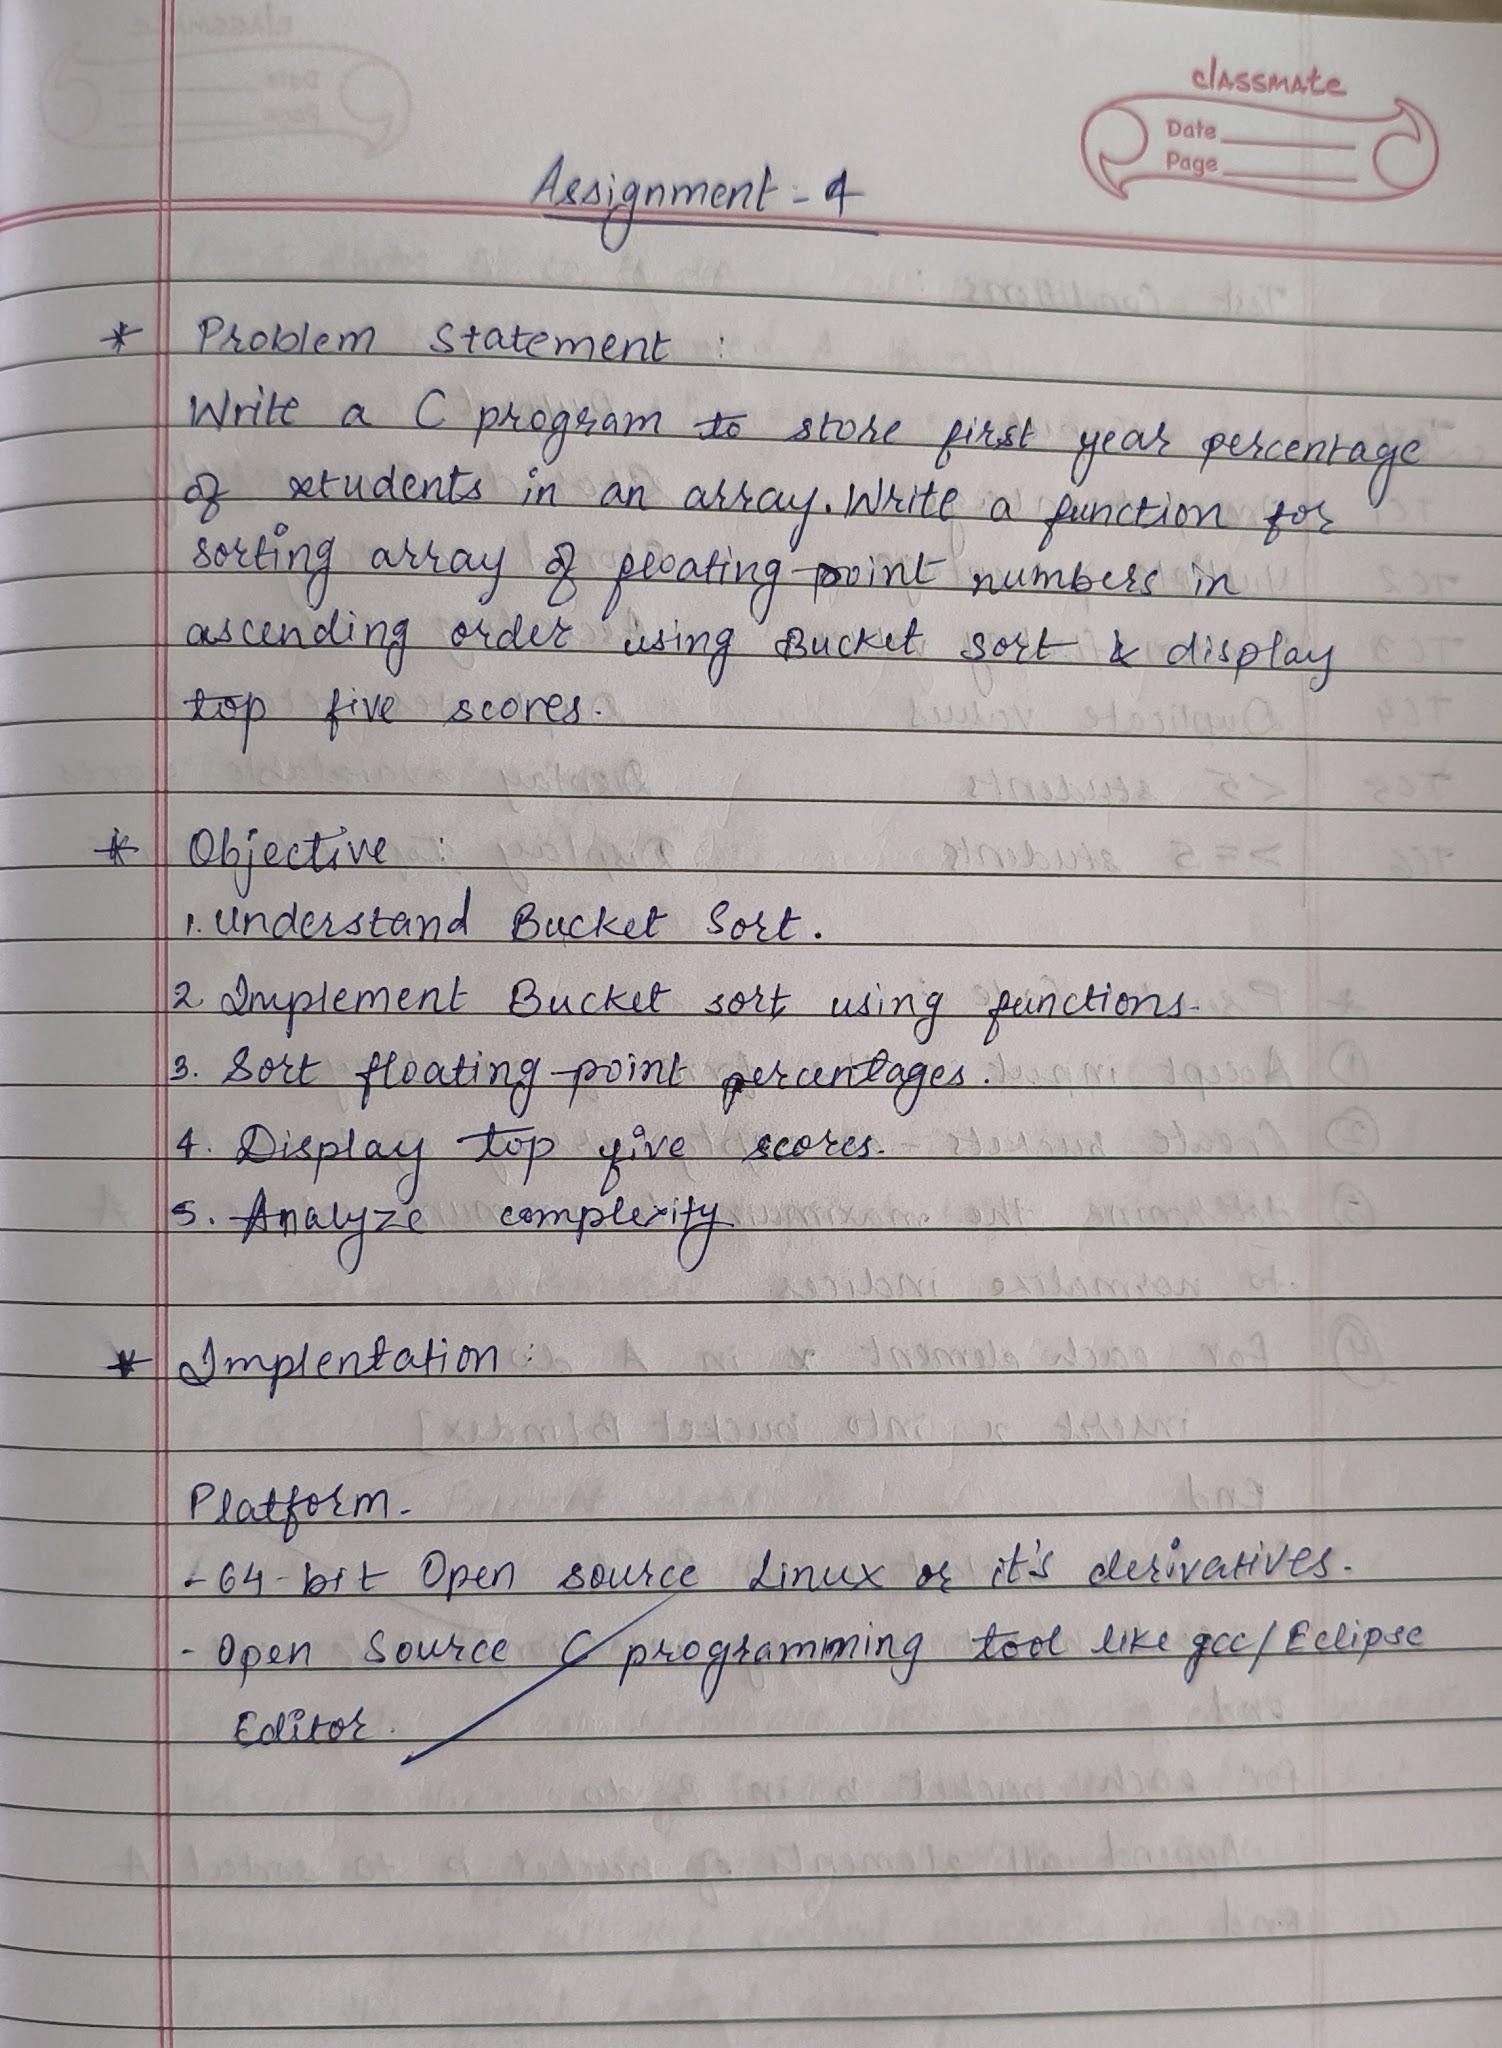 classmate
Date
Page
Assignment - 4
* Problem Statement :
Write a C program to store first year percentage
of students in an array. Write a function for
sorting array of floating-point numbers in
ascending order using Bucket Sort & display
top five scores.
* Objective :
1. Understand Bucket Sort.
2. Implement Bucket sort using functions.
3. Sort floating-point percentages.
4. Display top five scores.
5. Analyze complexity
* Implentation :
Platform -
- 64-bit Open source Linux or it's derivatives.
- Open Source C programming tool like gcc/Eclipse
Editor.